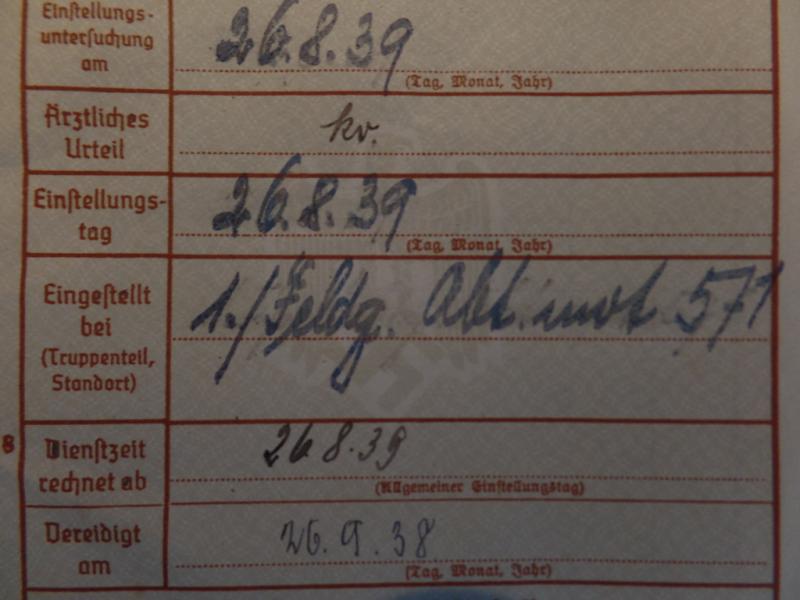 Einstellungs-
untersuchung
am
26.8.39
(Tag, Monat, Jahr)
Ärztliches
Urteil
kv.
Einstellungs-
tag
26.8.39
(Tag, Monat, Jahr)
Eingestellt
bei
(Truppenteil,
Standort)
1./Feldg. Abt. mot 571
8
Dienstzeit
rechnet ab
26 8.39
(Allgemeiner Einstellungstag)
Vereidigt
am
26.9.38
(Tag, Monat, Jahr)